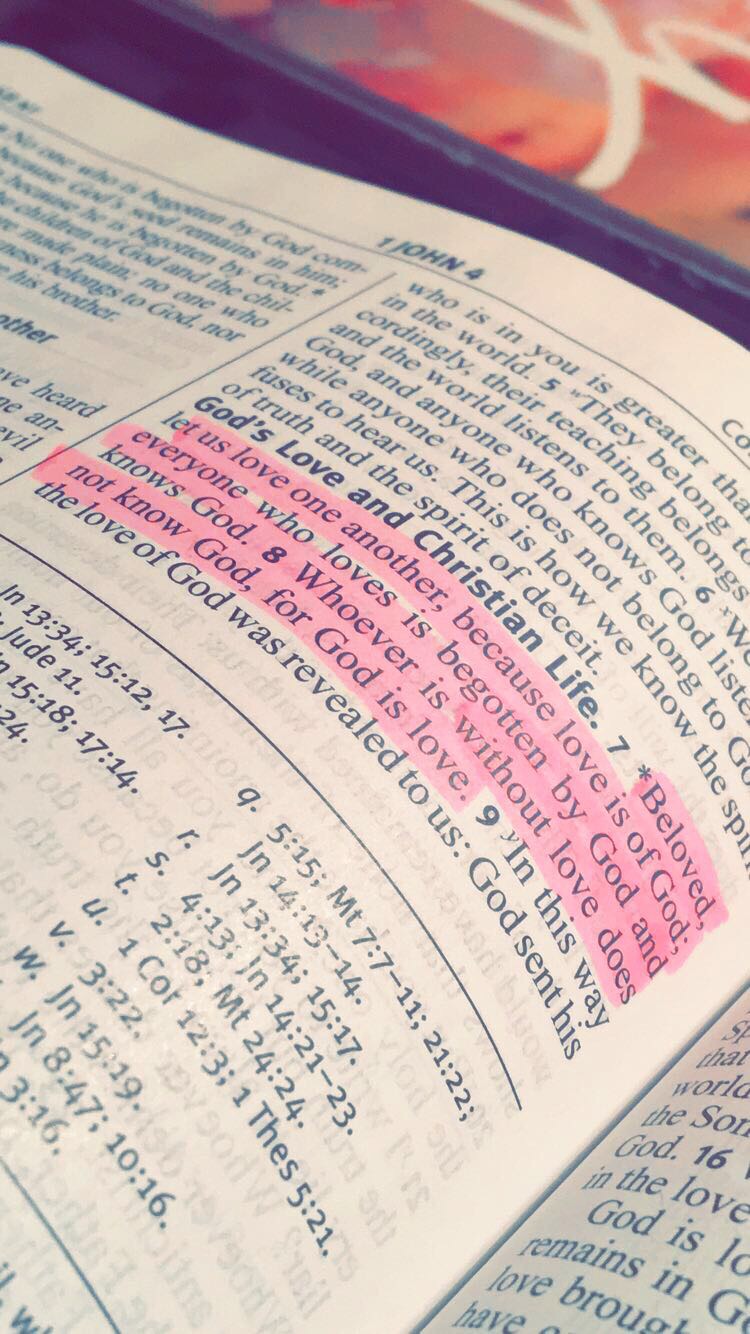 No one who is begotten by God com-
because God's seed remains in him;
because he is begotten by God. *
the children of God and the chil-
made plain; no one who
belongs to God, nor
his brother.
other
heard
an-
evil
Jn 13:34; 15:12, 17.
Jude 11.
15:18; 17:14.
24.
1 JOHN 4
who is in you is greater
in the world. 5 They belong to
cordingly, their teaching belongs
and the world listens to them. 6 We
God, and anyone who knows God
while anyone who does not belong to God
fuses to hear us. This is how we know the
of truth and the spirit of deceit.
God's Love and Christian Life. 7 *Beloved,
let us love one another, because love is of God;
everyone who loves is begotten by God and
knows God. 8 Whoever is without love does
not know God, for God is love. 9 yIn this way
the love of God was revealed to us: God sent his
q. 5:15; Mt 7:7–11; 21:22;
Jn 14:13–14.
r. Jn 13:34; 15:17.
s. 4:13; Jn 14:21–23.
t. 2:18; Mt 24:24.
u. 1 Cor 12:3; 1 Thes 5:21.
v. 3:22.
w. Jn 15:19.
Jn 8:47; 10:16.
3:16.
that
world
the Son
God. 16
in the love
God is
remains in
love
have